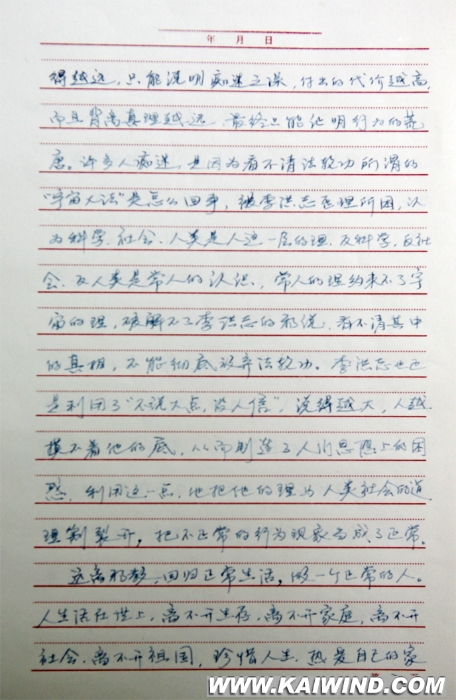 年 月 日
得越远，只能说明痴迷之深，付出的代价越高，
而且背离真理越远，最终只能他明行为的荒
唐。许多人痴迷，是因为看不清法轮功所谓的
“宇宙大法”是怎么回事，被李洪志歪理所困，认
为科学、社会、人类是人这一层的理，反科学、反社
会、反人类是常人的认识，常人的理约束不了宇
宙的理，破解不了李洪志的邪说，看不清其中
的真相，不能彻底放弃法轮功。李洪志也正
是利用了“不说大点，没人信”，说得越大，人越
摸不着他的底，从而制造了人们思想上的困
惑，利用这一点，他把他的理与人类社会的道
理割裂开，把不正常的行为现象当成了正常。
远离邪教，回归正常生活，做一个正常的人。
人生活在世上，离不开生存，离不开家庭，离不开
社会，离不开祖国，珍惜人生，热爱自己的家
WWW.KAIWIND.COM